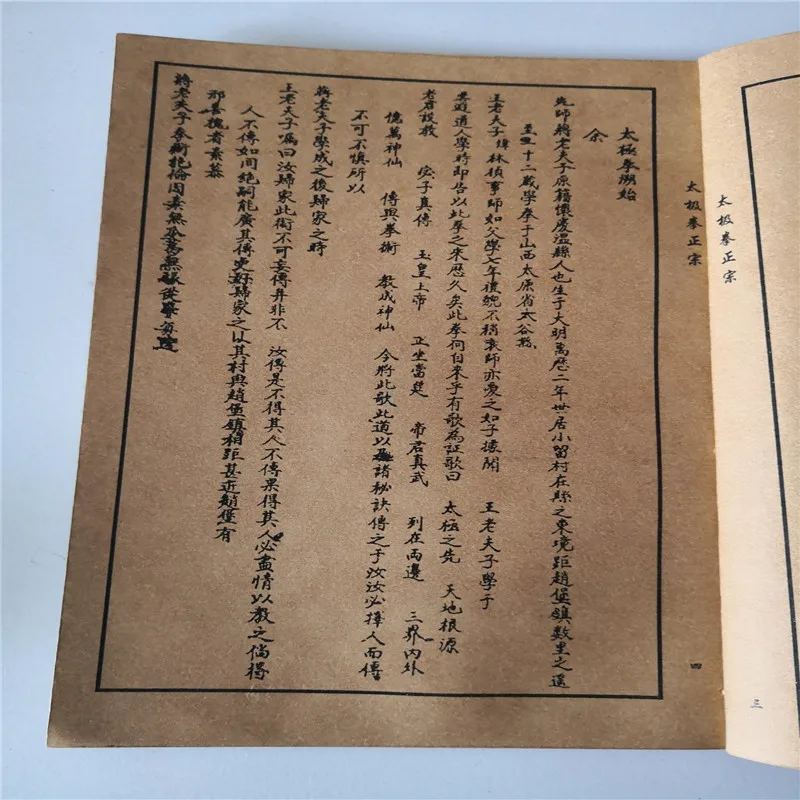 太極拳正宗
三
太极拳正宗
四
太極拳溯始
余
先師蔣老夫子原籍懷慶溫縣人也生于大明萬歷二年世居小留村在縣之東境距趙堡鎮数里之遥
至 十二歲學拳于山西太原省太谷縣
王老夫子諱林楨事師如父學七年禮貌不稍衰師亦愛之如子據聞 王老夫子學于
雲遊道人學時即告以此拳之来歷久矣此拳何自来乎有歌為証歌曰 太極之先 天地根源
老君設教 宓子真傳 玉皇上帝 正坐當筵 帝君真武 列在兩邊 三界内外
億萬神仙 傳與拳術 教成神仙 今將此歌此道以及諸秘訣傳之于汝汝必擇人而傳
不可不慎所以
蔣老夫子學成之後歸家之時
王老夫子囑曰汝歸家此術不可妄傳并非不 汝傳是不得其人不傳果得其人必盡情以教之倘得
人不傳如同絶嗣能廣其傳更好歸家之以其村與趙堡鎮相距甚近趙堡有
邢喜槐者素慕
蔣老夫子拳術絶倫因素無瓜葛無